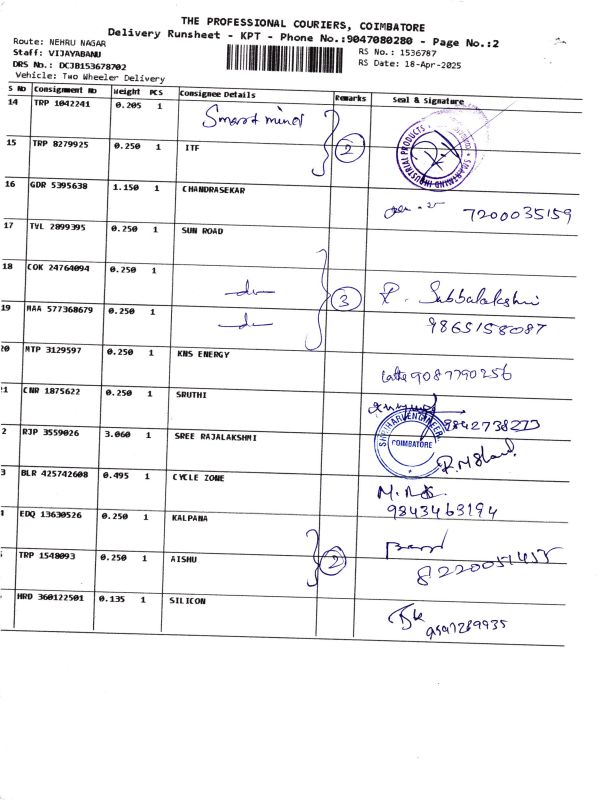 THE PROFESSIONAL COURIERS, COIMBATORE
Delivery Runsheet - KPT - Phone No.:9047080280 - Page No.:2
Route: NEHRU NAGAR
Staff: VIJAYABANU
DRS No.: DCJB153678702
Vehicle: Two Wheeler Delivery
RS No.: 1536787
RS Date: 18-Apr-2025
S No Consignment No Weight PCS Consignee Details Remarks Seal & Signature
14 TRP 1042241 0.205 1 Smart mind
15 TRP 8279925 0.250 1 ITF 2
INDUSTRIAL PRODUCTS
16 GDR 5395638 1.150 1 CHANDRASEKAR 7200035159
17 TYL 2899395 0.250 1 SUN ROAD
18 COK 24764094 0.250 1 3 Subbalakshmi
19 MAA 577368679 0.250 1 9865158087
20 MTP 3129597 0.250 1 KNS ENERGY 9087790256
1 CNR 1875622 0.250 1 SRUTHI
2 RJP 3559026 3.060 1 SREE RAJALAKSHMI COIMBATORE
3 BLR 425742608 0.495 1 CYCLE ZONE
9843463194
EDQ 13630526 0.250 1 KALPANA
TRP 1548093 0.250 1 AISHU 2
HRD 360122501 0.135 1 SILICON